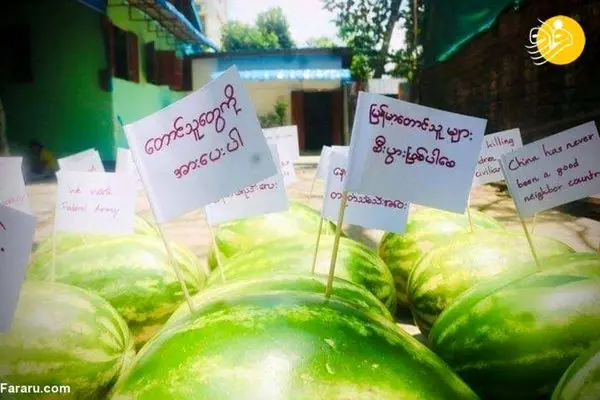 တောင်သူတွေကို
အားပေးပါ
မြန်မာတောင်သူများ
စီးပွားဖြစ်ပါစေ
killing
civilian
China has never
been a good
neighbor country
We need
Federal Army
Fararu.com